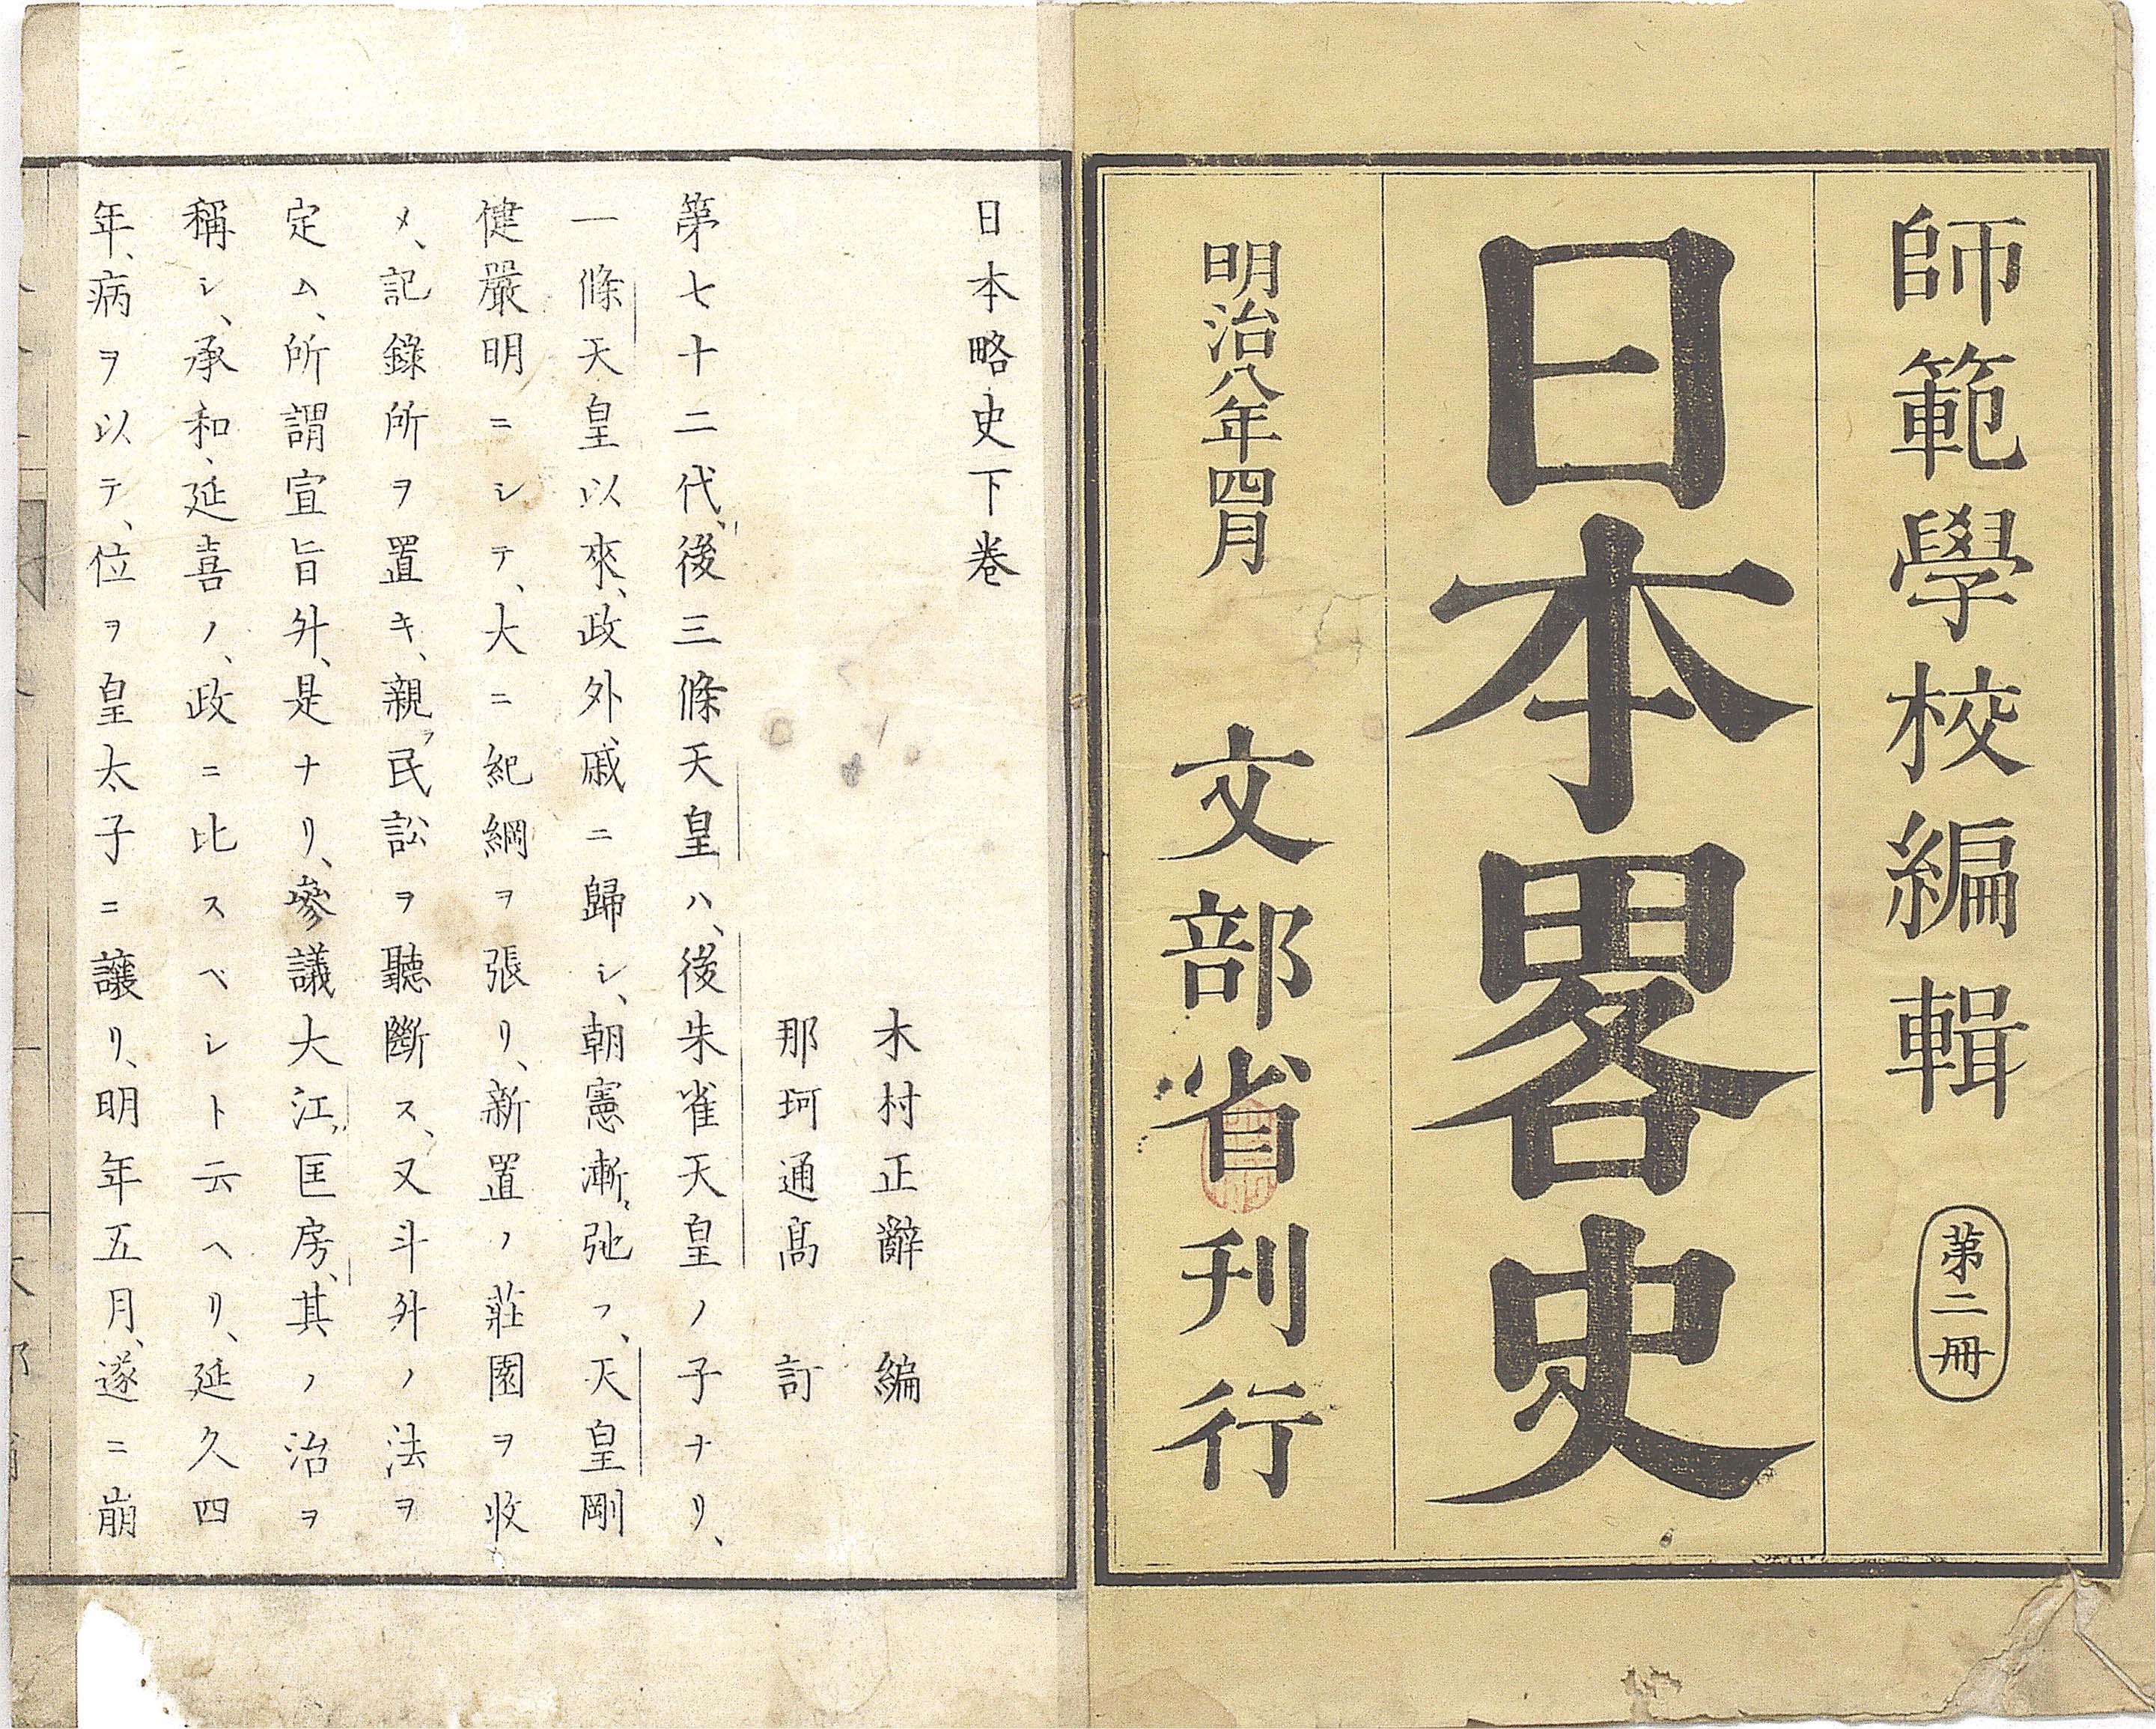 師範學校編輯 第二冊
日本畧史
明治八年四月 文部省刊行
日本略史下巻
木村正辭 編
那珂通高 訂
第七十二代、後三條天皇ハ、後朱雀天皇ノ子ナリ、
一條天皇以來、政外戚ニ歸シ、朝憲漸ク弛フ、天皇剛
健嚴明ニシテ、大ニ紀綱ヲ張リ、新置ノ莊園ヲ收
メ、記錄所ヲ置キ、親ラ民訟ヲ聽斷ス、又斗升ノ法ヲ
定ム、所謂宣旨升、是ナリ、參議大江匡房、其ノ治ヲ
稱シ、承和、延喜ノ、政ニ比スベシト云ヘリ、延久四
年、病ヲ以テ、位ヲ皇太子ニ讓リ、明年五月、遂ニ崩